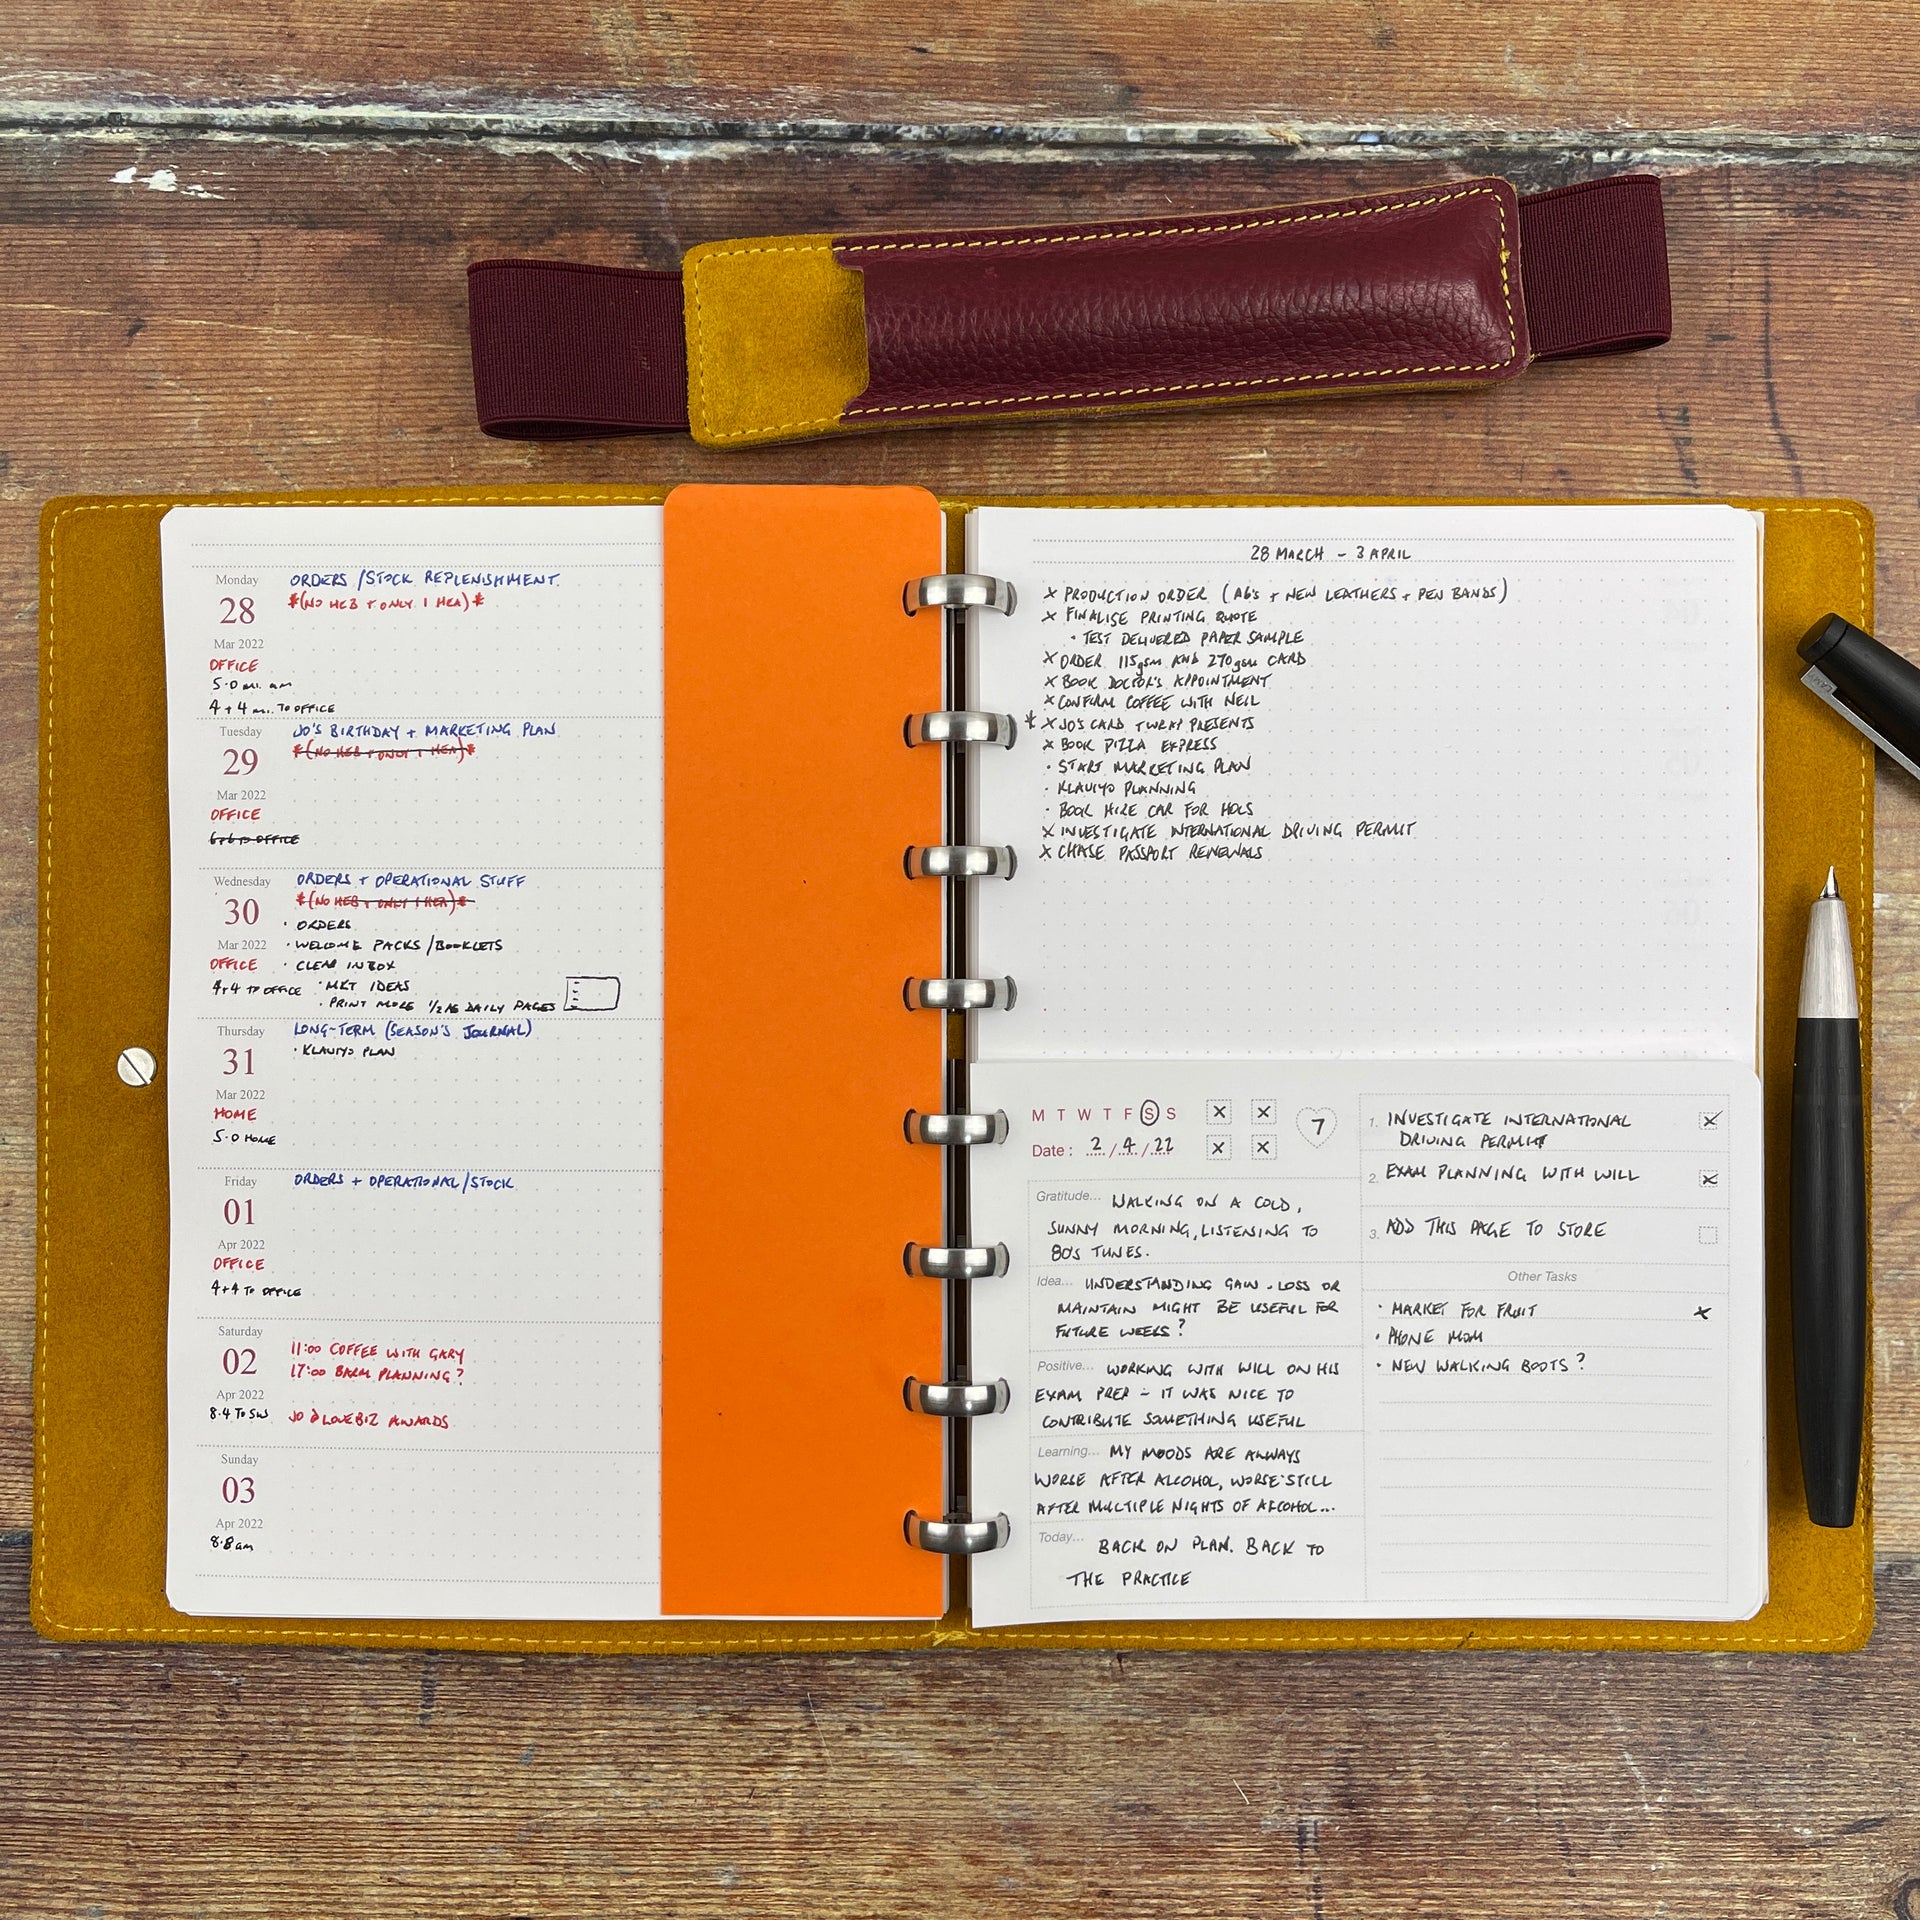 Monday
ORDERS / STOCK REPLENISHMENT
28
*(NO HEB + ONLY 1 HEA)*
Mar 2022
OFFICE
5.0 mi. am
4 + 4 mi. TO OFFICE
Tuesday
JO'S BIRTHDAY + MARKETING PLAN
29
*(NO HEB + ONLY 1 HEA)*
Mar 2022
OFFICE
TO OFFICE
Wednesday
ORDERS + OPERATIONAL STUFF
30
*(NO HEB + ONLY 1 HEA)*
· ORDERS
Mar 2022
· WELCOME PACKS / BOOKLETS
OFFICE
· CLEAR INBOX
4+4 TO OFFICE
· MKT IDEAS
· PRINT MORE 1/2 A5 DAILY PAGES
Thursday
LONG-TERM (SEASON'S JOURNAL)
31
· KLAVIYO PLAN
Mar 2022
HOME
5.0 HOME
Friday
ORDERS + OPERATIONAL / STOCK
01
Apr 2022
OFFICE
4+4 TO OFFICE
Saturday
11:00 COFFEE WITH GARY
02
17:00 BARM PLANNING?
Apr 2022
8.4 TO SW
JO @ LOVEBIZ AWARDS
Sunday
03
Apr 2022
8.8 am
28 MARCH - 3 APRIL
× PRODUCTION ORDER (A6's + NEW LEATHERS + PEN BANDS)
× FINALISE PRINTING QUOTE
· TEST DELIVERED PAPER SAMPLE
× ORDER 115gsm AND 270gsm CARD
× BOOK DOCTOR'S APPOINTMENT
× CONFIRM COFFEE WITH NEIL
* × JO'S CARD + WRAP PRESENTS
× BOOK PIZZA EXPRESS
· START MARKETING PLAN
· KLAVIYO PLANNING
· BOOK HIRE CAR FOR HOLS
× INVESTIGATE INTERNATIONAL DRIVING PERMIT
× CHASE PASSPORT RENEWALS
M T W T F S S
Date: 2 / 4 / 22
7
Gratitude... WALKING ON A COLD,
SUNNY MORNING, LISTENING TO
80'S TUNES.
Idea... UNDERSTANDING GAIN - LOSS OR
MAINTAIN MIGHT BE USEFUL FOR
FUTURE WEEKS?
Positive... WORKING WITH WILL ON HIS
EXAM PREP - IT WAS NICE TO
CONTRIBUTE SOMETHING USEFUL
Learning... MY MOODS ARE ALWAYS
WORSE AFTER ALCOHOL, WORSE STILL
AFTER MULTIPLE NIGHTS OF ALCOHOL...
Today... BACK ON PLAN. BACK TO
THE PRACTICE
1. INVESTIGATE INTERNATIONAL
DRIVING PERMIT
2. EXAM PLANNING WITH WILL
3. ADD THIS PAGE TO STORE
Other Tasks
· MARKET FOR FRUIT ×
· PHONE MOM
· NEW WALKING BOOTS?
LAMY